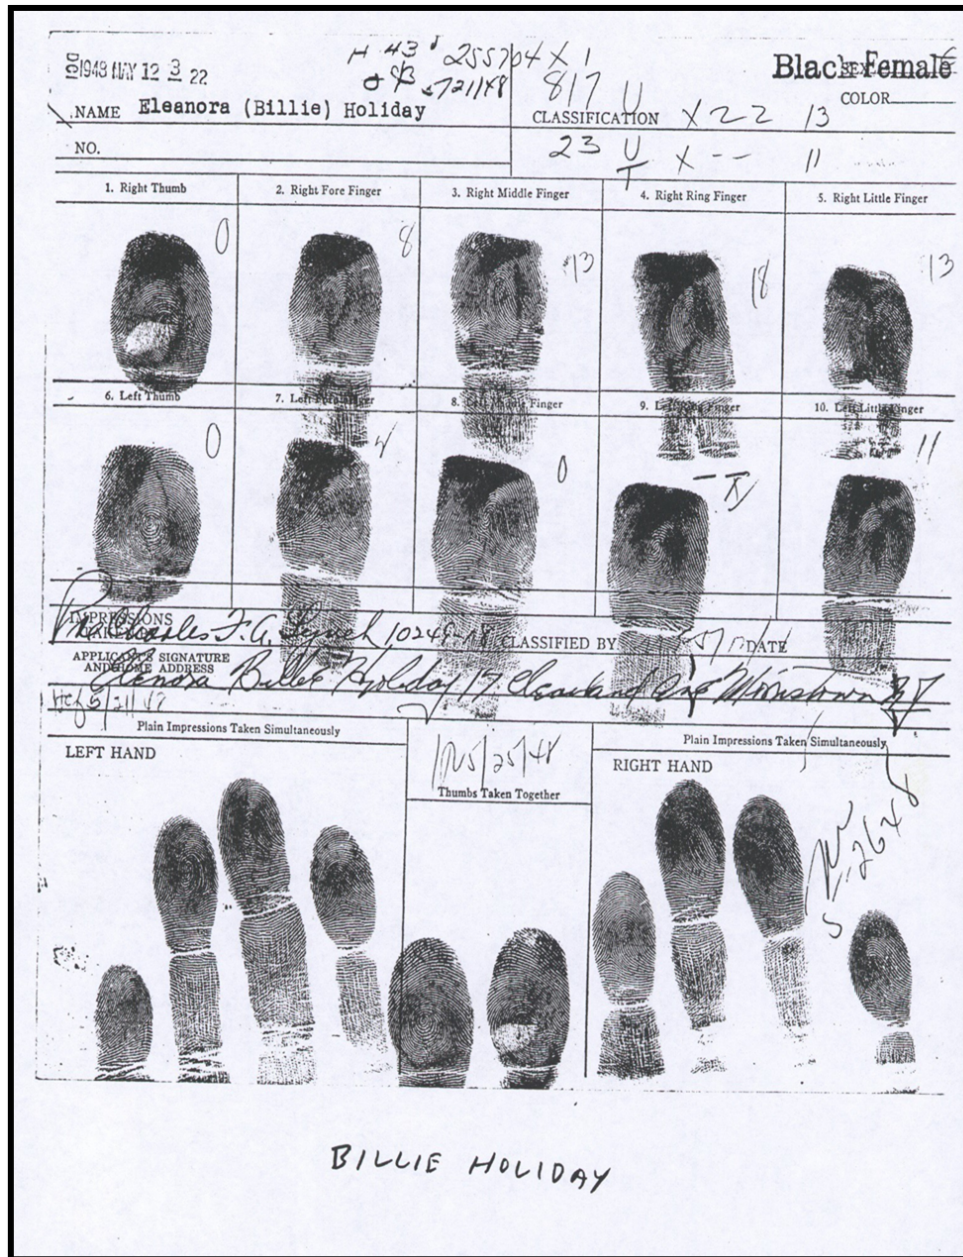 1948 MAY 12 3 22
H 43 255704 X 1
5/21/48
817 U
Black Female
COLOR
NAME Eleanora (Billie) Holiday
CLASSIFICATION X 22 13
NO.
23 U X -- 11
T
1. Right Thumb 2. Right Fore Finger 3. Right Middle Finger 4. Right Ring Finger 5. Right Little Finger
0 8 13 18 13
6. Left Thumb 7. Left Fore Finger 8. Left Middle Finger 9. Left Ring Finger 10. Left Little Finger
0 4 0 11
IMPRESSIONS
Charles F. A. Lynch 10249-18 CLASSIFIED BY DATE
APPLICANT'S SIGNATURE
AND HOME ADDRESS
Elenora Billie Holiday 17 Cleaveland Ave Morristown NJ
5/21/48
Plain Impressions Taken Simultaneously
LEFT HAND
5/25/48
Thumbs Taken Together
Plain Impressions Taken Simultaneously
RIGHT HAND
5-26-48
BILLIE HOLIDAY